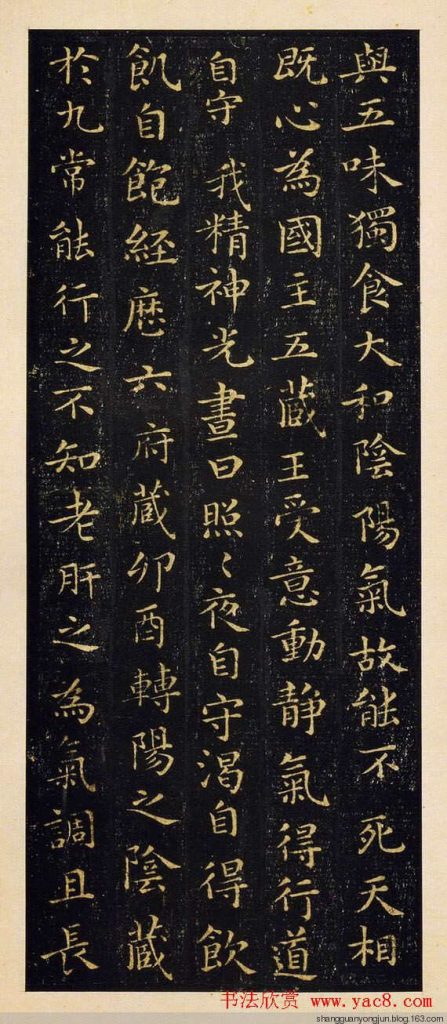 與五味獨食大和陰陽氣故能不死天相
既心為國主五藏王受意動静氣得行道
自守我精神光晝日照〻夜自守渴自得飲
飢自飽經歷六府藏卯酉轉陽之陰藏
於九常能行之不知老肝之為氣調且長
书法欣赏 www.yac8.com
shangguanyongjun.blog.163.com